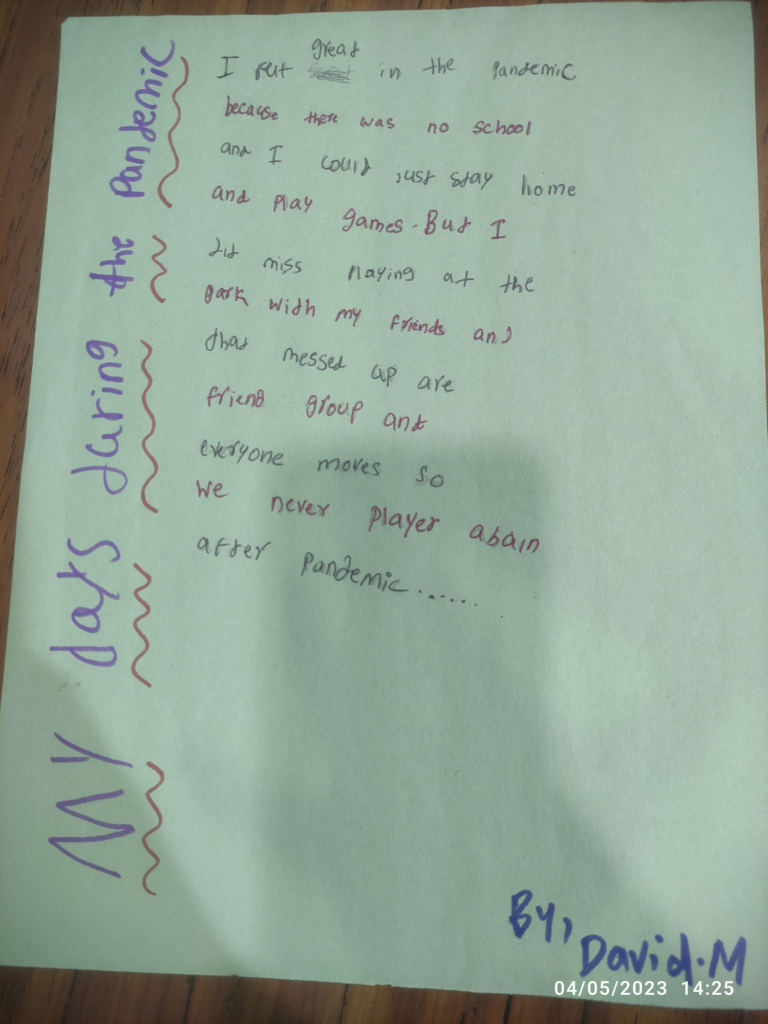 My days during the Pandemic
I felt great in the Pandemic
because there was no school
and I could just stay home
and Play games. But I
did miss Playing at the
Park with my friends and
that messed up are
friend group and
everyone moves so
we never Player again
after Pandemic......
By, David.M
04/05/2023 14:25